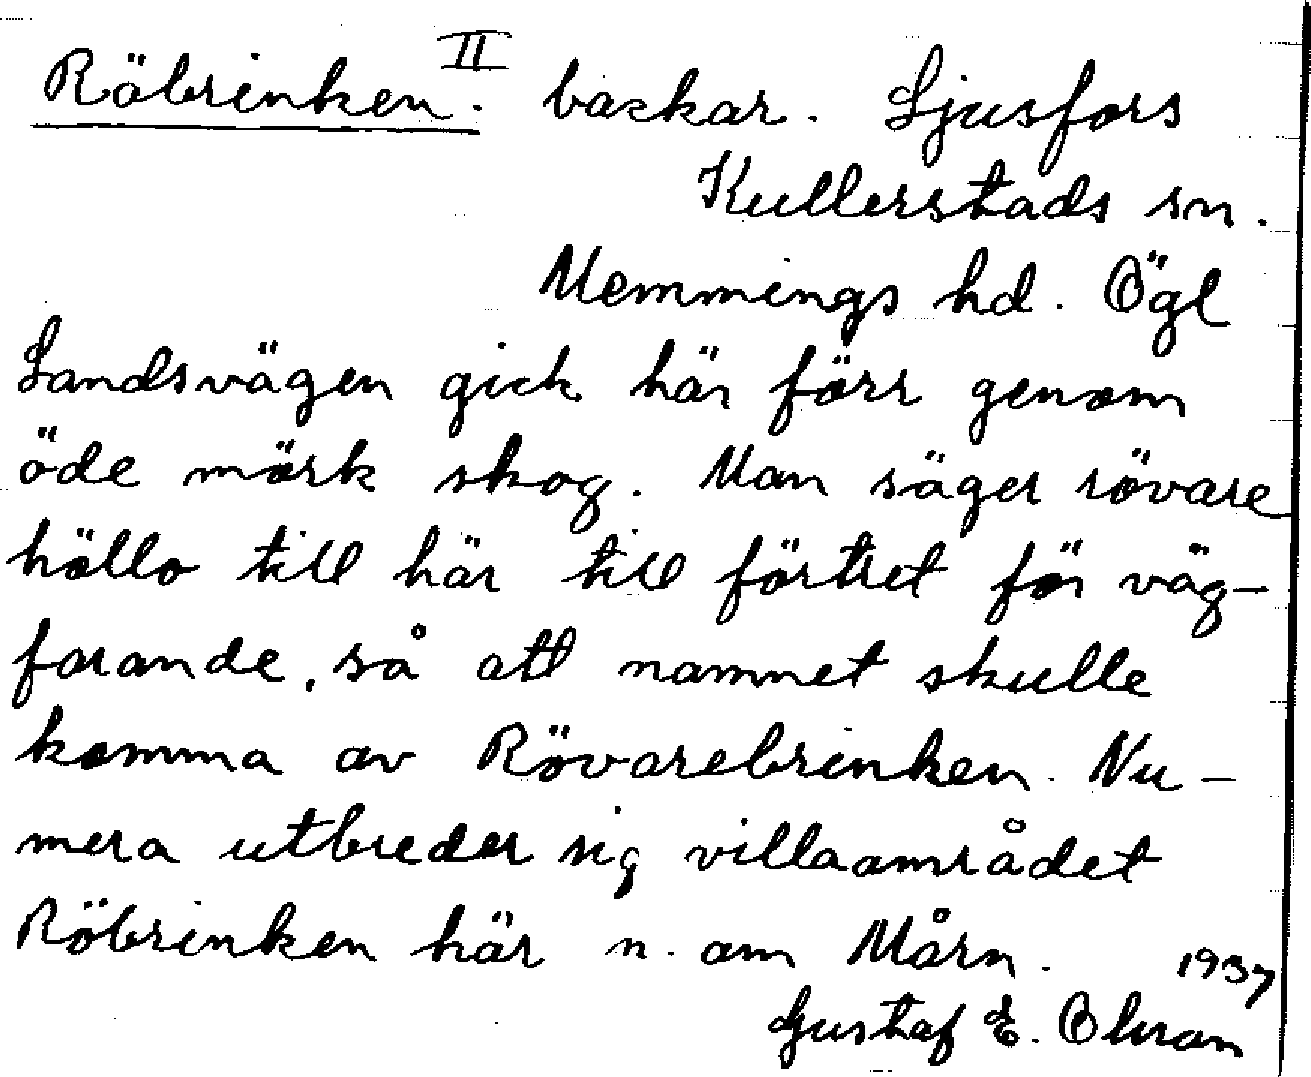 Röbrinken. II backar. Ljusfors
Kullerstads sn.
Memmings hd. Ögl
Landsvägen gick här förr genom
öde mörk skog. Man säger rövare
höllo till här till förtret för väg-
farande, så att namnet skulle
komma av Rövarebrinken. Nu-
mera utbreder sig villaområdet
Röbrinken här n. om Mårn. 1937
Gustaf E.